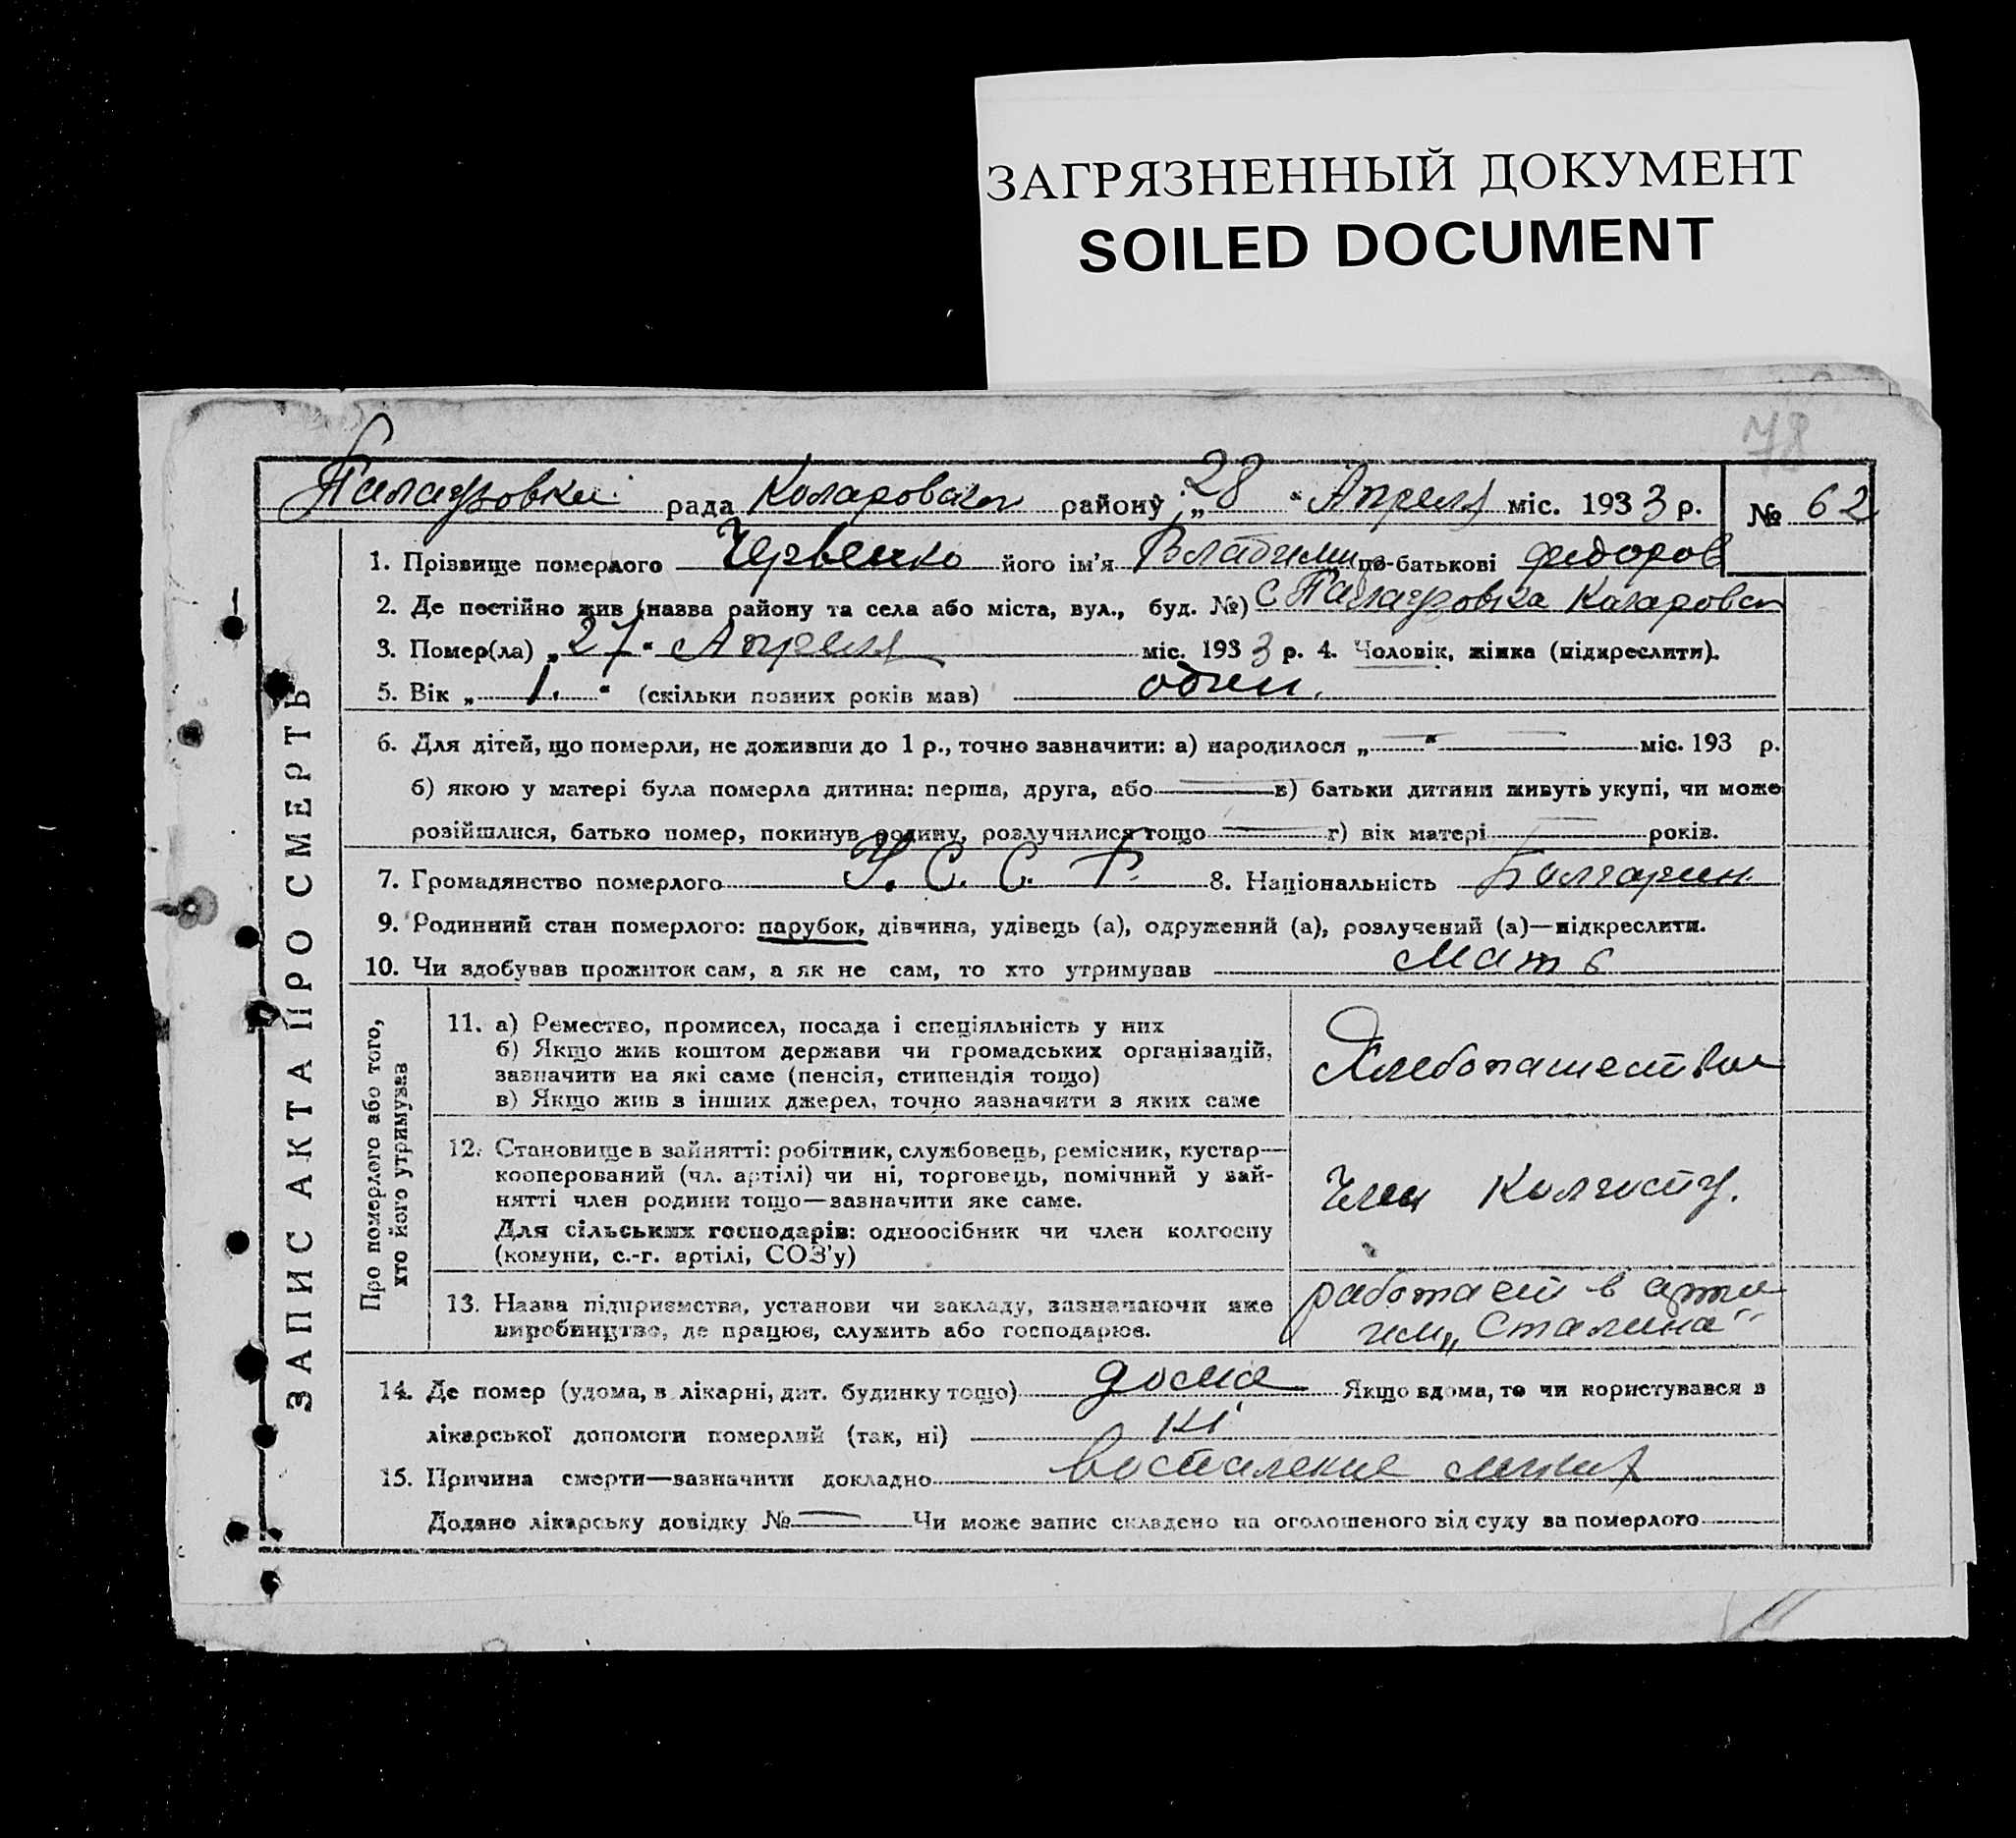 ЗАГРЯЗНЕННЫЙ ДОКУМЕНТ
SOILED DOCUMENT
78
рада Коларовского району „28“ Апреля міс. 1933 р. № 62
ЗАПИС АКТА ПРО СМЕРТЬ
1. Прізвище померлого Червенко його ім'я Владимир по-батькові федоров
2. Де постійно жив (назва району та села або міста, вул., буд. №) С Коларовск
3. Помер(ла) „27“ Апреля міс. 1933 р. 4. Чоловік, жінка (підкреслити).
5. Вік „1.“ (скільки повних років мав) один.
6. Для дітей, що померли, не доживши до 1 р., точно зазначити: а) народилося „—“ — міс. 193 р.
б) якою у матері була померла дитина: перша, друга, або — в) батьки дитини живуть укупі, чи може
розійшлися, батько помер, покинув родину, розлучилися тощо — г) вік матері — років.
7. Громадянство померлого У. С. С. Р. 8. Національність Болгарин
9. Родинний стан померлого: парубок, дівчина, удівець (а), одружений (а), розлучений (а)—підкреслити.
10. Чи здобував прожиток сам, а як не сам, то хто утримував Мать
Про померлого або того,
хто його утримував
11. а) Ремество, промисел, посада і спеціяльність у них
б) Якщо жив коштом держави чи громадських організацій,
зазначити на які саме (пенсія, стипендія тощо)
в) Якщо жив з інших джерел, точно зазначити з яких саме
Хлебопашество
12. Становище в зайнятті: робітник, службовець, ремісник, кустар—
кооперований (чл. артілі) чи ні, торговець, помічний у зай-
нятті член родини тощо—зазначити яке саме.
Для сільських господарів: одноосібник чи член колгоспу
(комуни, с.-г. артілі, СОЗ'у)
Член Колгоспу.
13. Назва підприємства, установи чи закладу, зазначаючи яке
виробництво, де працює, служить або господарює.
работает в арти
им „Сталина“
14. Де помер (удома, в лікарні, дит. будинку тощо) дома Якщо вдома, то чи користувався з
лікарської допомоги померлий (так, ні) ні
15. Причина смерти—зазначити докладно воспаление легких
Додано лікарську довідку № — Чи може запис складено на оголошеного від суду за померлого